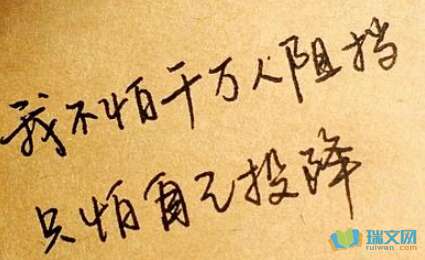 我不怕千万人阻挡
只怕自己投降
瑞文网
ruiwen.com